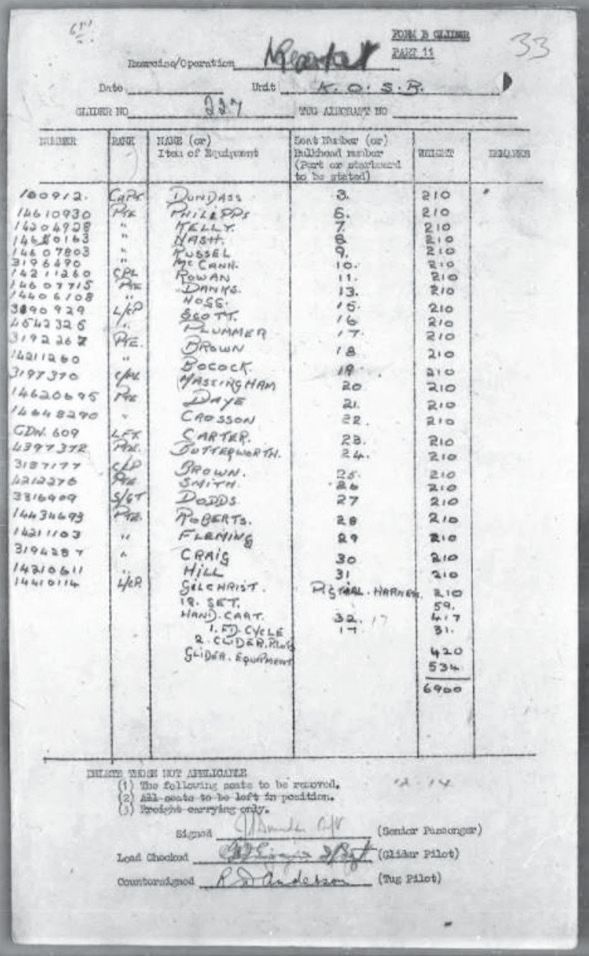 FORM B GLIDER
PART 11
33
Exercise/Operation Market
Date Unit K.O.S.B.
GLIDER NO 227 TUG AIRCRAFT NO
NUMBER RANK NAME (or) Item of Equipment Seat Number (or) Bulkhead number (Port or starboard to be stated) WEIGHT REMARKS
100912. Capt DUNDASS 3. 210
14610930 Pte PHILLPPS 6. 210
14204928 " KELLY. 7. 210
14680163 " NASH. 8 210
14607803 " RUSSEL 9. 210
3196490 " McCANN. 10. 210
14211260 CPL ROWAN 11. 210
14607715 Pte DANKS. 13. 210
14406108 " HOGG. 15. 210
3190929 L/CP SCOTT. 16 210
4542325 " PLUMMER 17. 210
3192267 Pte. BROWN 18 210
14211260 " BOCOCK. 19 210
3197370 C/PL MASSINGHAM 20 210
14620695 Pte DAYE 21. 210
14648290 " CROSSON 22. 210
CDN. 609 LFT CARTER. 23. 210
4397372 Pte. BUTTERWORTH. 24. 210
3187177 C/LP BROWN. 25. 210
4212276 Pte SMITH. 26 210
3316909 S/GT DODDS 27 210
14434693 Pte ROBERTS. 28 210
14211103 " FLEMING 29 210
3194287 " CRAIG 30 210
14210611 " HILL 31 210
14410114 L/CP GILCHRIST. HARNESS. 210
18. SET. 59.
HAND. CART. 32. 17 417
1. FD. CYCLE 17. 31.
2. GLIDER. PILOTS 420
GLIDER. EQUIPMENT 534
6900
DELETE THOSE NOT APPLICABLE
(1) The following seats to be removed. 12-14
(2) All seats to be left in position.
(3) Freight carrying only.
Signed (Senior Passenger)
Load Checked (Glider Pilot)
Countersigned Anderson (Tug Pilot)